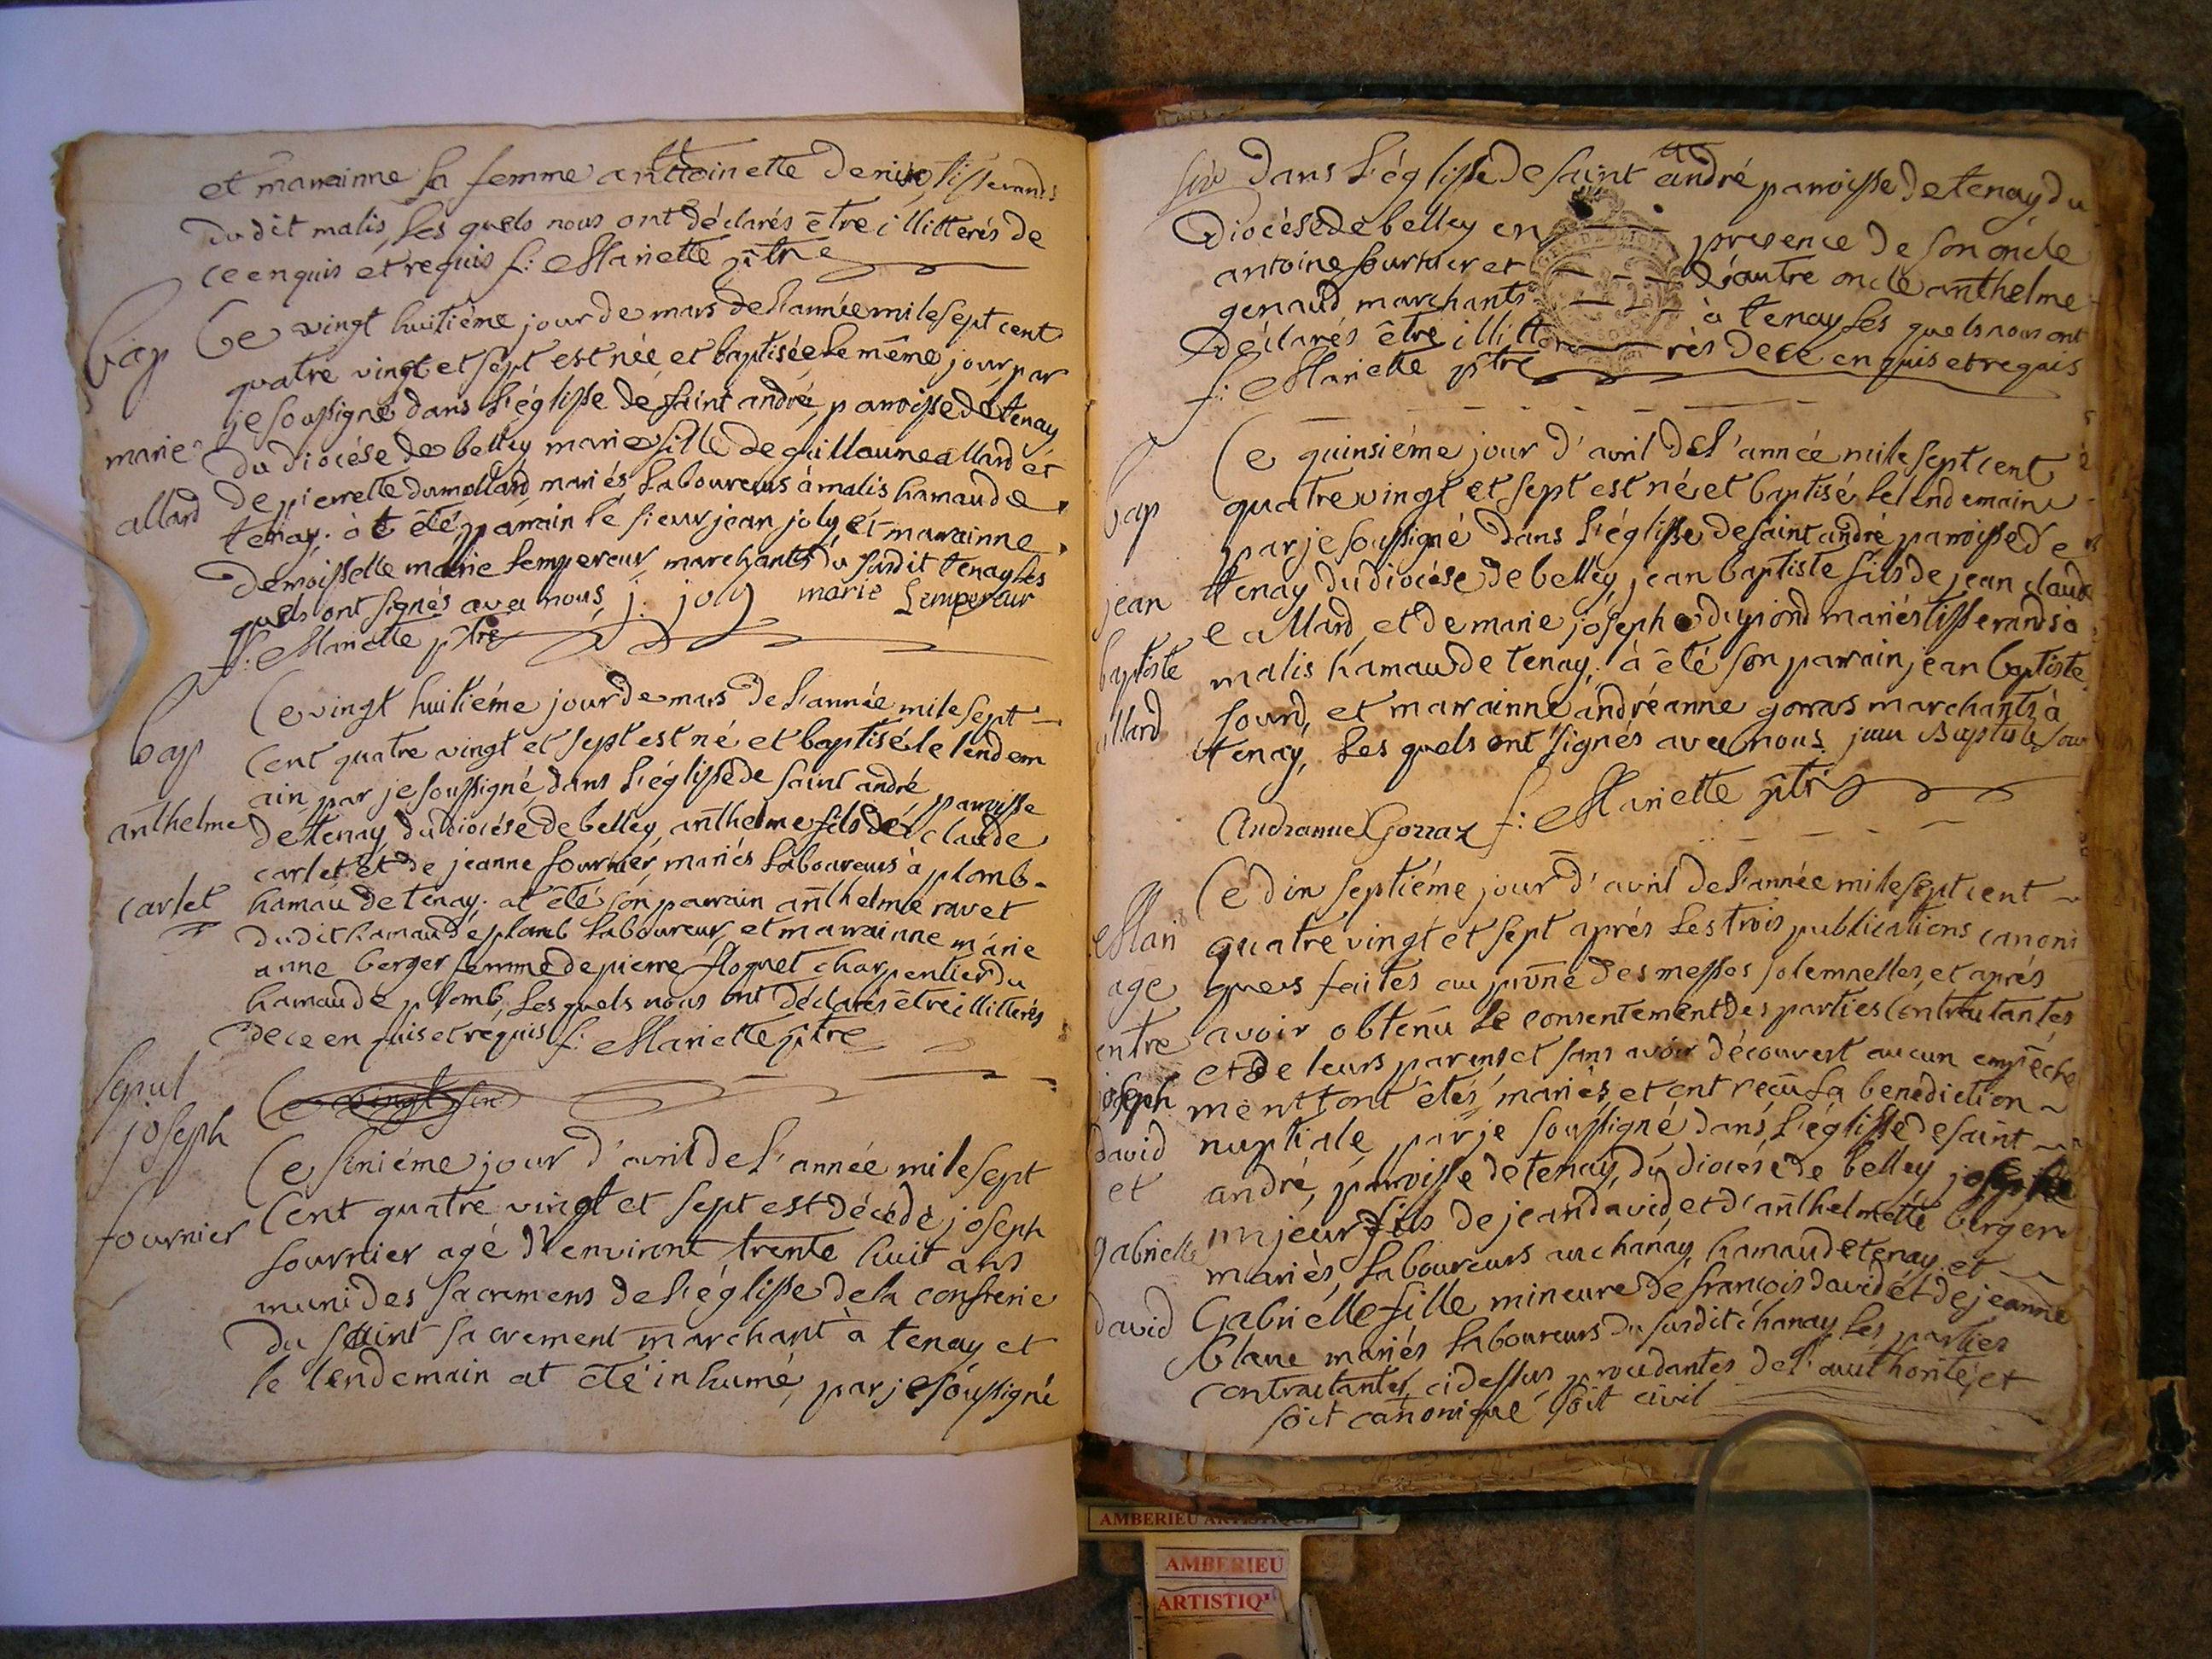 et marrainne sa femme anttoinette denis tisserands
dudit malis, les quels nous ont déclarés être illitterés de
ce enquis et requis f: Mariette ptre
bap
Ce vingt huitiéme jour de mars de l'année mile sept cent
quatre vingt et sept est née et baptisée le même jour par
je soussigné dans l'églisse de saint andré, paroisse de tenay
marie
du diocése de belley marie fille de guillaume allard et
allard
de pierrette dumollard mariés laboureurs à malis hamaude
tenay. à été parrain le sieur jean joly, et marrainne
demoisselle marie lempereur marchants du susdit tenay les
quels ont signés avec nous, j: joly marie Lempereur
f: Mariette ptre
bap
Ce vingt huitiéme jour de mars de l'année mile sept
cent quatre vingt et sept est né et baptisé le lendem
ain par je soussigné dans l'églisse de saint andré paroisse
anthelme
de tenay du diocése de belley, anthelme fils de claude
carlet et de jeanne fournier, mariés laboureurs à plomb
carlet
hamau de tenay. at été son parrain anthelme ravet
dudit hamaude plomb laboureur, et marrainne marie
anne berger femme de pierre floquet charpentier du
hamaude plomb, les quels nous ont déclarés être illitterés
de ce en quis et requis f: Mariette ptre
sepul
Ce vingt
joseph
Ce siniéme jour d'avril de l'année mile sept
fournier
Cent quatre vingt et sept est décédé joseph
fournier agé d'environt trente huit ans
muni des sacremens de l'églisse de la confrerie
du saint sacrement marchant à tenay et
le lendemain at été inhumé, par je soussigné
dans l'églisse de saint andré paroisse de tenay, du
diocése de belley en presence de son oncle
antoine fournier et d'autre oncle anthelme
genaud marchants à tenay les quels nous ont
déclarés être illitterés de ce en quis et requis
f: Mariette ptre
Ce quinsiéme jour d'avril de l'année mile sept cent
bap
quatre vingt et sept est né et baptisé le lendemain
par je soussigné dans l'églisse de saint andré paroisse de
jean
tenay du diocése de belley, jean baptiste fils de jean claud
e allard et de marie joséphe dupiond mariés tisserands à
baptiste
malis hamau de tenay. à été son parrain jean baptiste
allard
sourd, et marrainne andréanne gorras marchants à
tenay, les quels ont signés avec nous. jean Baptiste sour
Andranne Gorraz f: Mariette ptre
Ce din septiéme jour d'avril de l'année mile sept cent
Mari
quatre vingt et sept aprés les trois publications canoni
age
ques faites au prone des messes solemnelles, et aprés
entre
avoir obtenu le consentement des parties contractantes
et de leurs parens et sans avoir découvert aucun empêche
joseph
ment, ont étés mariés et ont reçu la benediction
david
nuptiale par je soussigné dans l'églisse de saint
et
andré, paroisse de tenay, du diocése de belley joseph
majeur fils de jean david, et d'anthelmette berger
gabrielle
mariés laboureurs au chanay, hamau de tenay, et
Gabriélle fille mineure de françois david et de jeanne
david
blanc mariés laboureurs du susdit chanay, les parties
contractantes cidessus procedantes de l'authorité, et
soit canonique soit civil
AMBERIEU ARTISTIQUE
AMBERIEU
ARTISTIQ